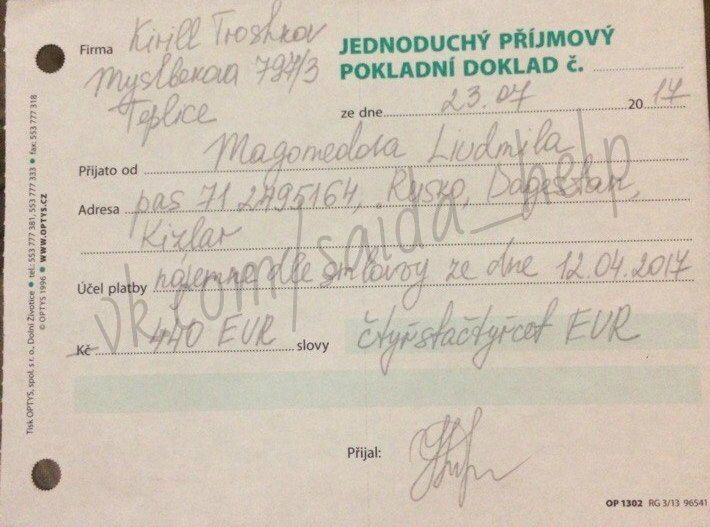 Firma Kirill Troshkov
Myslbekova 797/3
Teplice
JEDNODUCHÝ PŘÍJMOVÝ
POKLADNÍ DOKLAD č.
ze dne 23.07 20 17
Přijato od Magomedova Liudmila
Adresa pas 71 2495164, Rusko, Dagestan,
Kizlar
Účel platby nájemné dle smlouvy ze dne 12.04.2017
Kč 440 EUR slovy čtyřstačtyřcet EUR
Přijal:
OP 1302 RG 3/13 96541
Tisk OPTYS, spol. s r. o., Dolní Životice • tel.: 553 777 381, 553 777 333 • fax: 553 777 318
© OPTYS 1996 • WWW.OPTYS.CZ
vk.com/saida_help